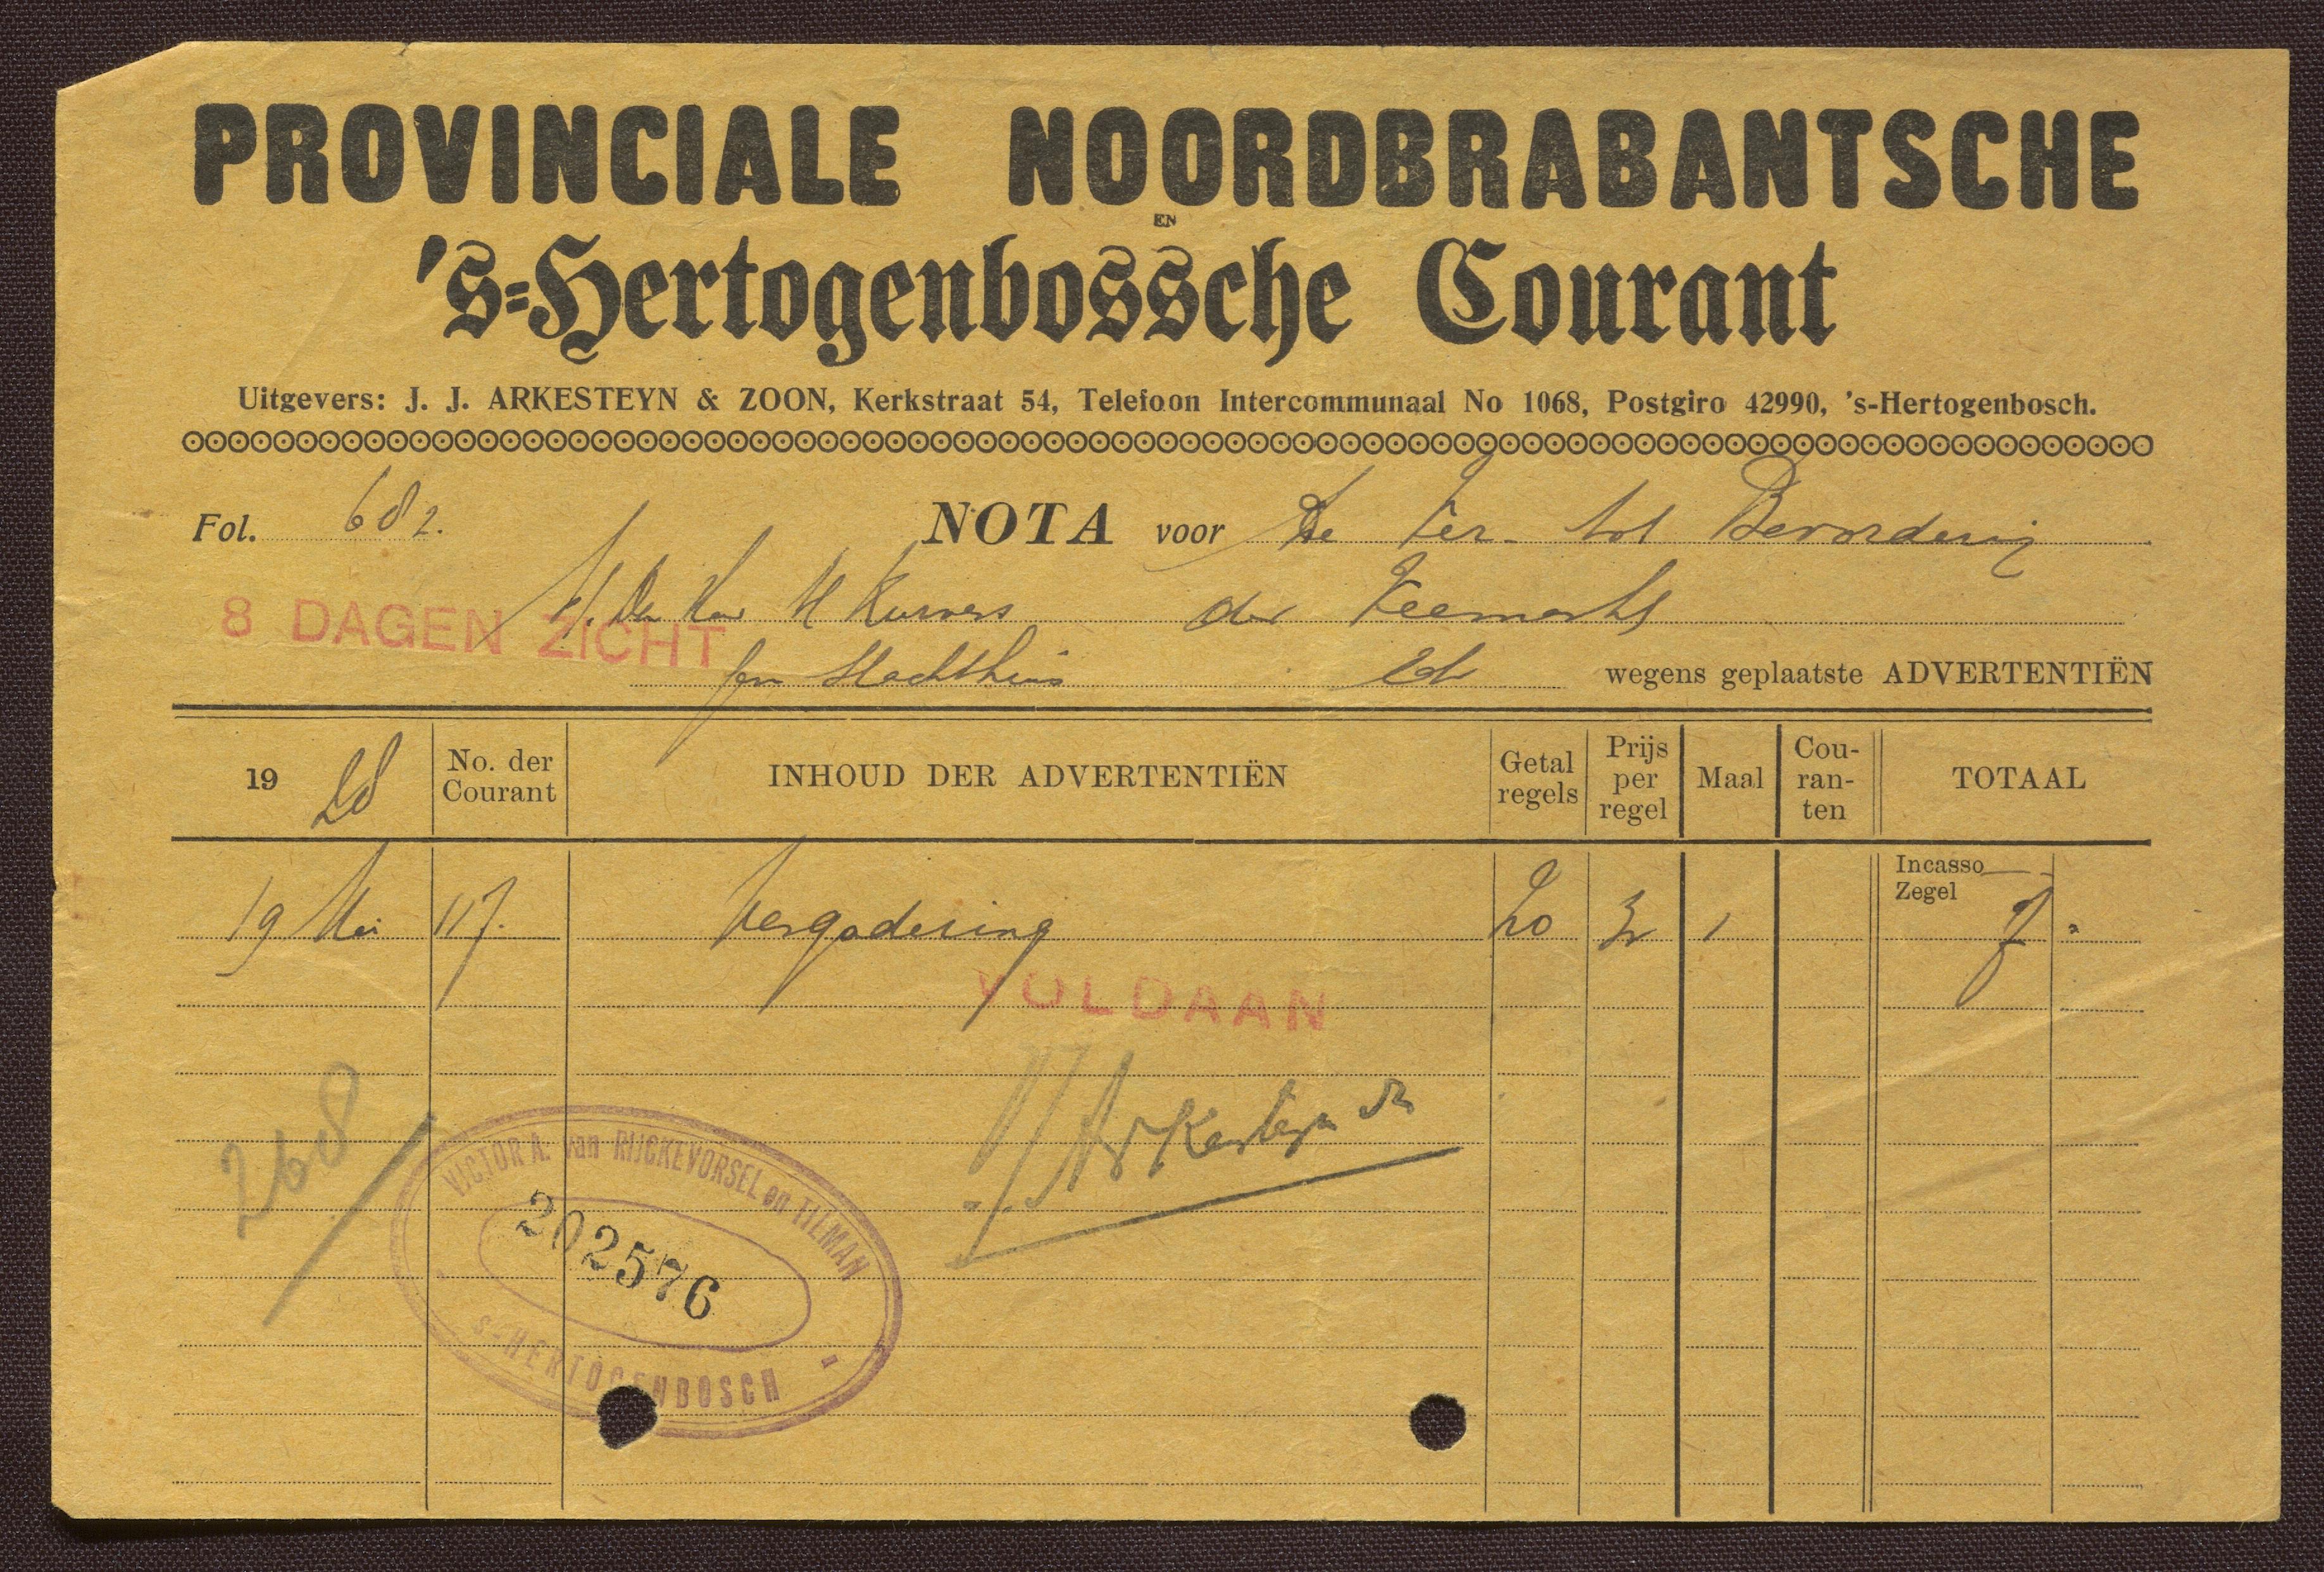 PROVINCIALE NOORDBRABANTSCHE
EN
's-Hertogenbossche Courant
Uitgevers: J. J. ARKESTEYN & ZOON, Kerkstraat 54, Telefoon Intercommunaal No 1068, Postgiro 42990, 's-Hertogenbosch.
Fol. 682. NOTA voor De Ver. tot Bevordering
8 DAGEN ZICHT
H Kurvers der Veemarkt
Slachthuis wegens geplaatste ADVERTENTIËN
1928 No. der Courant INHOUD DER ADVERTENTIËN Getal regels Prijs per regel Maal Cou-ran-ten TOTAAL
Incasso
Zegel
19 Mei 117. Vergadering 20 1 7
VOLDAAN
268
Arkesteyn
VICTOR A. van RIJCKEVORSEL en TILMAN
202576
's-HERTOGENBOSCH